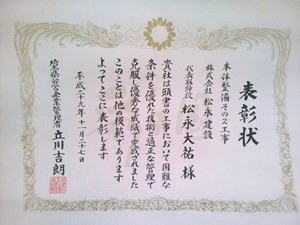 表彰状
本体整備その2工事
株式会社 松永建設
代表取締役 松永大祐 様
貴社は頭書の工事において困難な
条件を優れた技術と適正な管理で
克服し優秀な成績で完成されました
このことは他の模範であります
よってここに表彰します
平成二十九年十一月二十七日
埼玉県公営企業管理者 立川吉朗